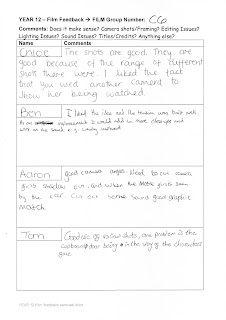 YEAR 12 – Film Feedback → FILM Group Number: CG
Comments: Does it make sense? Camera shots/Framing? Editing Issues?
Lighting Issues? Sound Issues? Titles/Credits? Anything else?
Name
Comments
Chloe
The shots are good. They are
good because of the range of different
shots there were. I liked the fact
that you used another camera to
show her being watched.
Ben
I liked the idea and the tension was built well.
As an improvement I would add in more closeups and
work on the sound e.g. windy
Aaron
good camera angles. Need to cut camera
girls shadow out, and when the girls down
by the car. Cut out some sound good graphic
match
Tom
Good use of various shots, one problem is the
cupboard door being in the way of the characters
face
YEAR 12 Film feedback